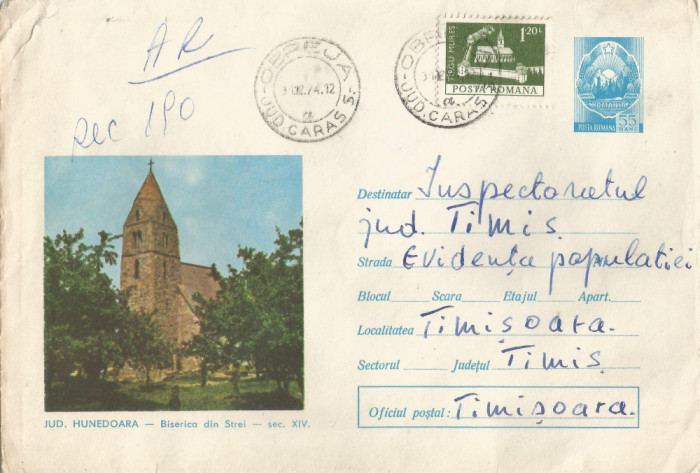 AR
Rec 190
OBREJA
.74.12
JUD. CARAS S.
OBREJA
JUD. CARAS S.
TIRGU MURES
1.20 L
POSTA ROMANA
ROMANIA
POSTA ROMANA
55
BANI
Destinatar Inspectoratul
jud. Timiș
Strada Evidența populatiei
Blocul Scara Etajul Apart.
Localitatea Timișoara.
Sectorul Județul Timiș
Oficiul poștal: Timișoara.
JUD. HUNEDOARA — Biserica din Strei — sec. XIV.